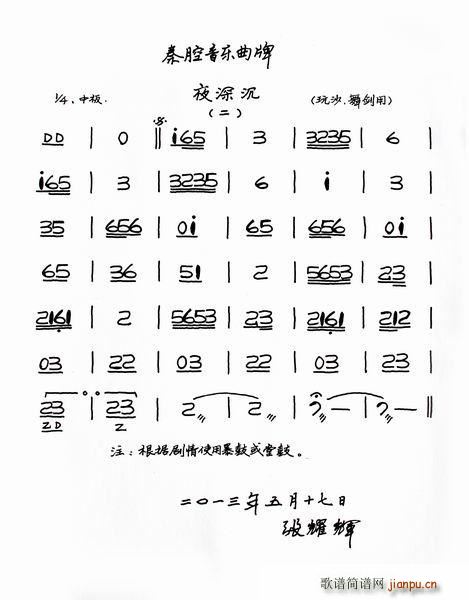 秦腔音乐曲牌
夜深沉
1/4、中板. (二) (玩沙.舞剑用)
DD | 0 || i65 | 3 | 3235 | 6 |
i65 | 3 | 3235 | 6 | i | 3 |
35 | 656 | 0i | 65 | 656 | 0i |
65 | 36 | 51 | 2 | 5653 | 23 |
2161 | 2 | 5653 | 23 | 2161 | 212 |
03 | 22 | 03 | 22 | 03 | 23 |
23 | 23 | 2 | 2 | 2 — | 2 — ||
ZD Z
注:根据剧情使用暴鼓或堂鼓。
二〇一三年五月十七日
张耀辉
歌谱简谱网
jianpu.cn